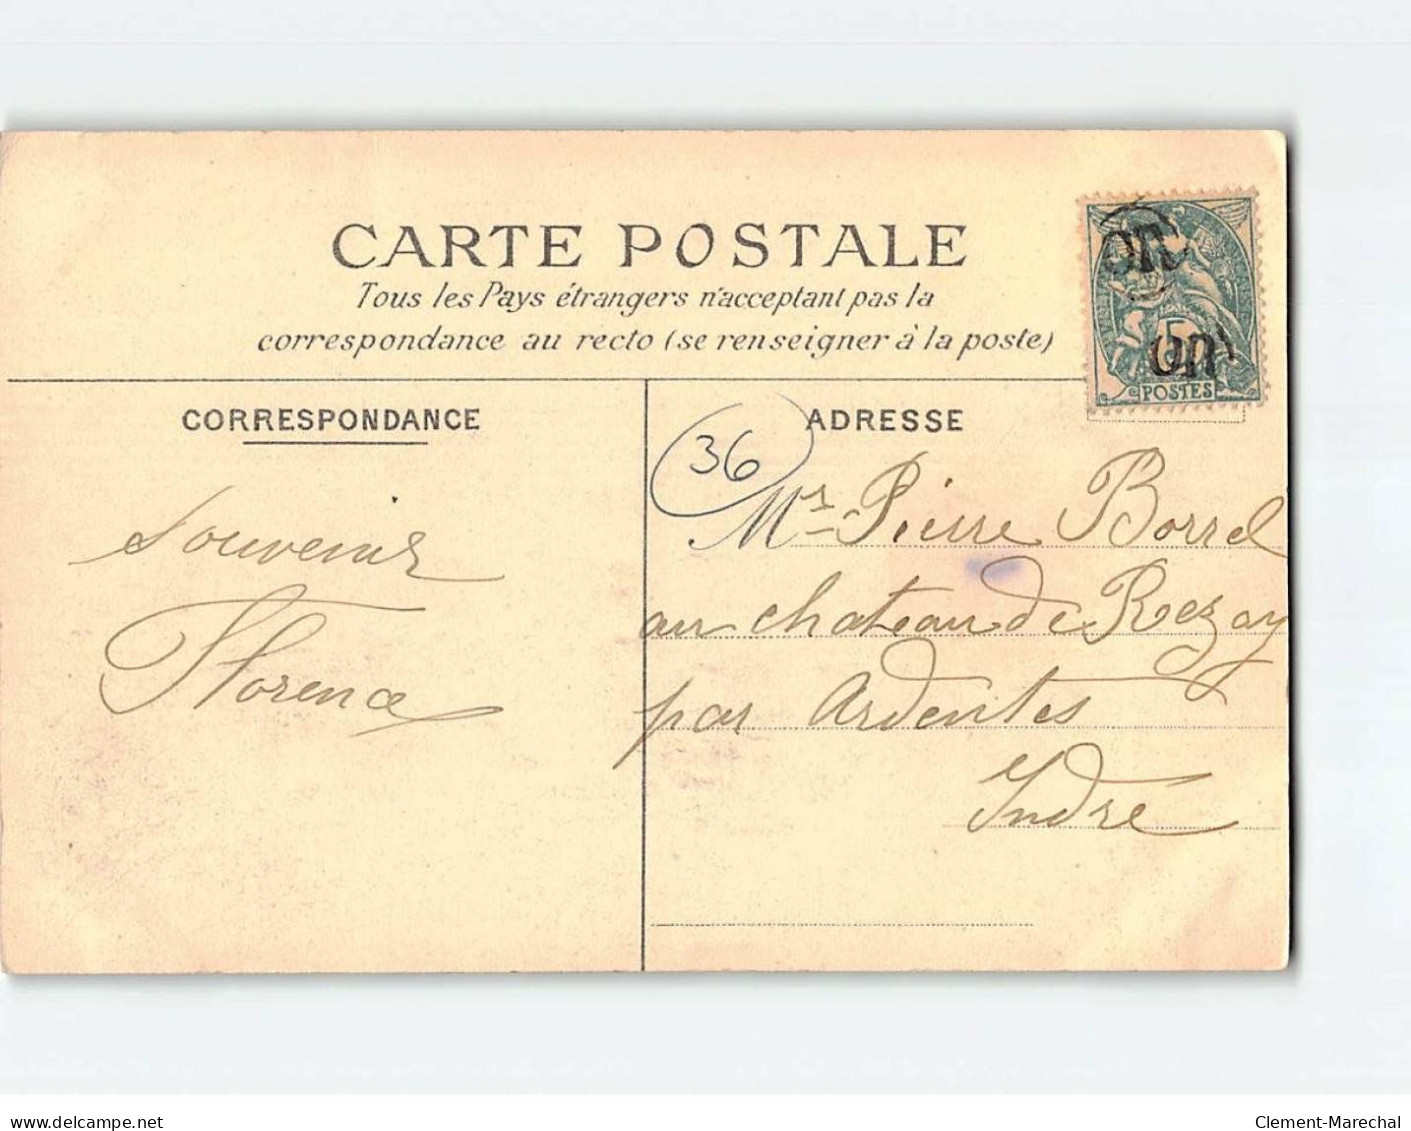 CARTE POSTALE
Tous les Pays étrangers n'acceptant pas la
correspondance au recto (se renseigner à la poste)
CORRESPONDANCE
ADRESSE
36
Souvenir
Florence
Mr Pierre Borrel
au chateau de Rezay
par Ardentes
Indre
OR
OR
5
POSTES
www.delcampe.net
Clement-Marechal